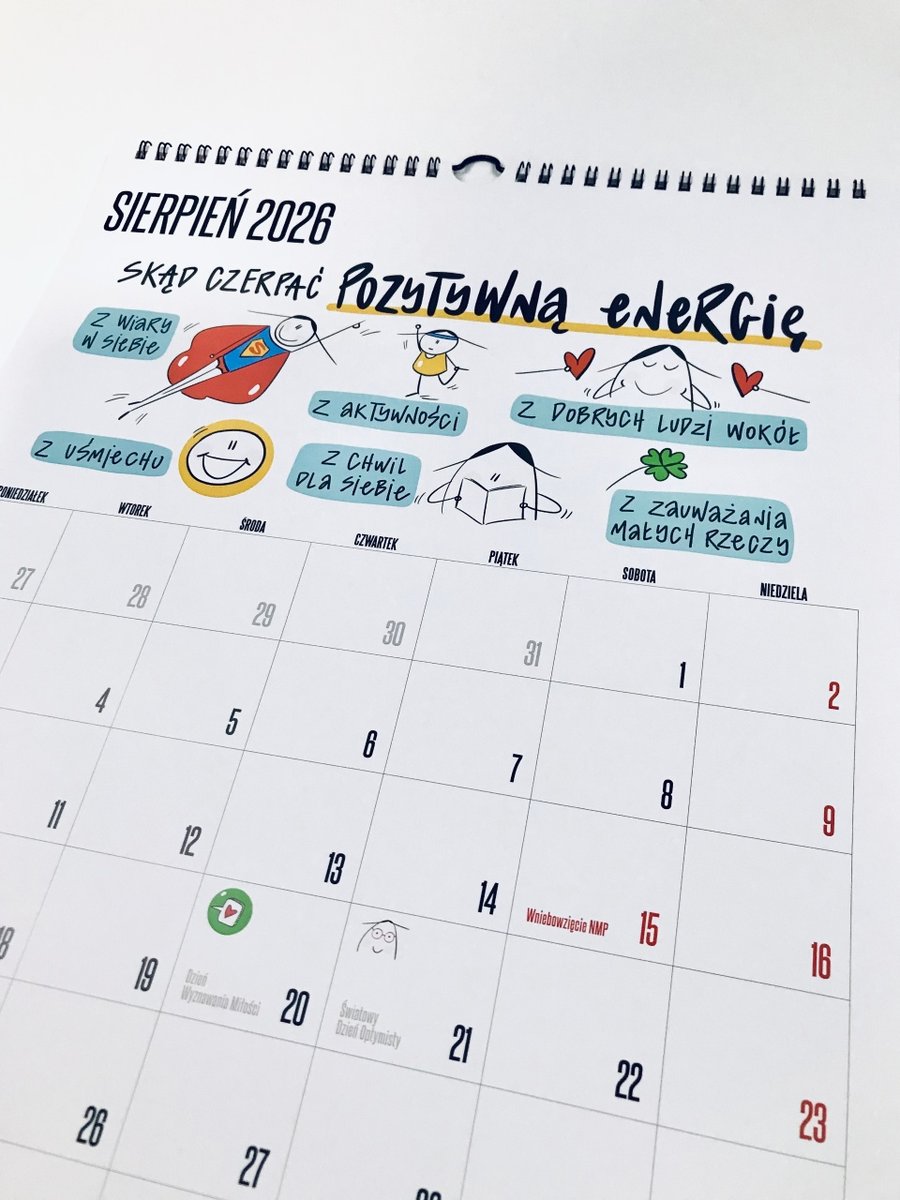 SIERPIEŃ 2026
SKĄD CZERPAĆ POZYTYWNĄ ENERGIĘ
Z WIARY
W SIEBIE
S
Z AKTYWNOŚCI
Z DOBRYCH LUDZI WOKÓŁ
Z UŚMIECHU
Z CHWIL
DLA SIEBIE
Z ZAUWAŻANIA
MAŁYCH RZECZY
PONIEDZIAŁEK WTOREK ŚRODA CZWARTEK PIĄTEK SOBOTA NIEDZIELA
27 28 29 30 31 1 2
4 5 6 7 8 9
11 12 13 14 15 16
Wniebowzięcie NMP
18 19 20 21 22 23
Dzień
Wyznawania Miłości
Światowy
Dzień Optymisty
26 27